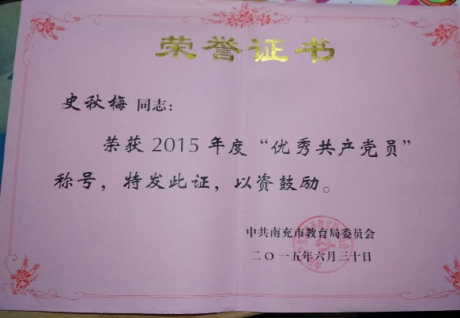 荣誉证书
史秋梅 同志：
荣获 2015 年度“优秀共产党员”
称号，特发此证，以资鼓励。
中共南充市教育局委员会
二〇一五年六月三十日